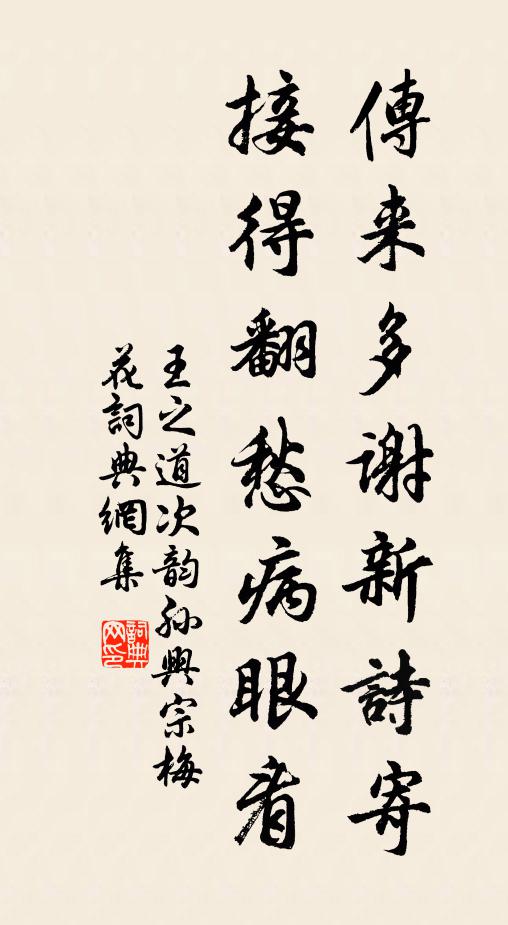 傳来多謝新詩寄
接得翻愁病眼看
王之道次韵孙興宗梅
花詞典網集
詞典
网印